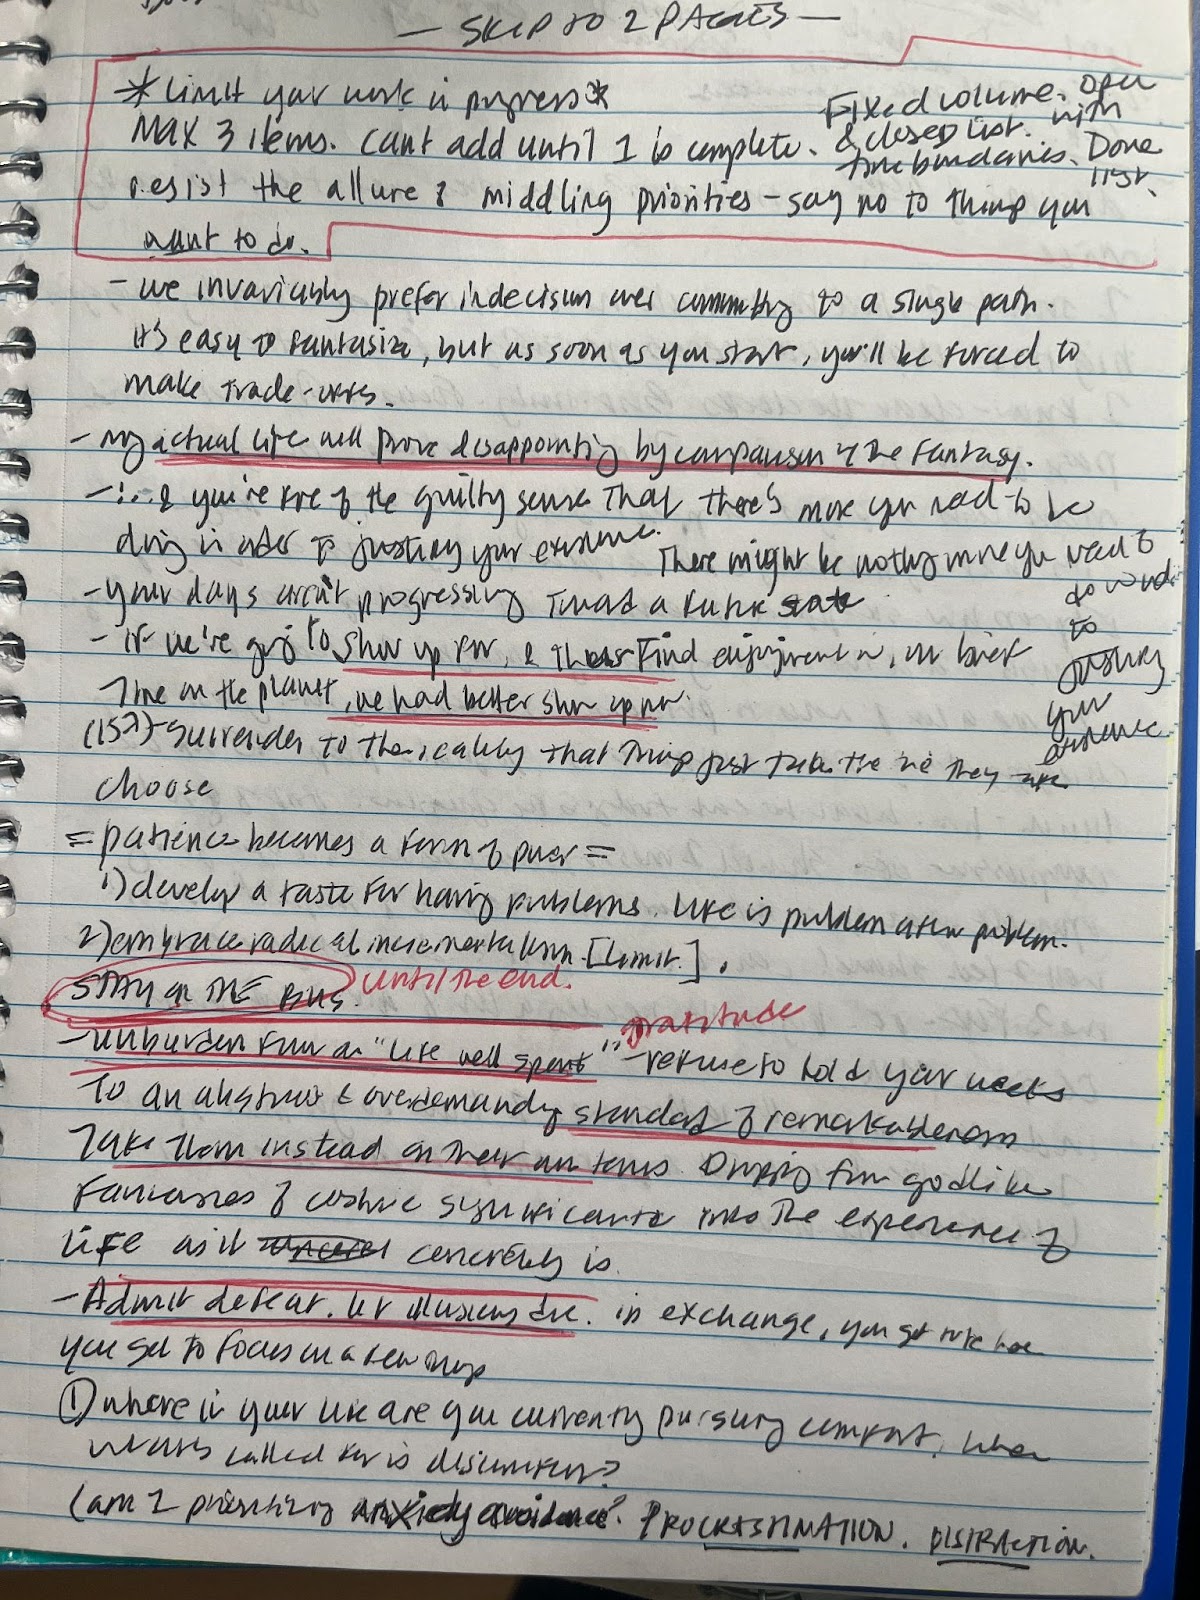 — SKIP TO 2 PAGES —
*Limit your work in progress*
MAX 3 items. Cant add until 1 is complete.
Fixed volume. open
& closed list. with
time boundaries. Done
list.
resist the allure of middling priorities - say no to things you
want to do.
- we invariably prefer indecision over committing to a single path.
it's easy to fantasize, but as soon as you start, you'll be forced to
make trade-offs.
- my actual life will prove disappointing by comparison of the fantasy.
- ... & you're free of the guilty sense that there's more you need to be
doing in order to justify your existence.
There might be nothing more you need to
do
to
justify
your
existence
- your days aren't progressing toward a future state
- if we're going to show up for, & thus find enjoyment in, our brief
time on the planet, we had better show up now.
(157) - Surrender to the reality that things just take the time they take
choose
= patience becomes a form of power =
1) develop a taste for having problems. Life is problem after problem.
2) embrace radical incrementalism. [Limit.].
STAY on THE BUS. until the end.
gratitude
- unburden from an "life well spent" - refuse to hold your weeks
To an abstract & overdemanding standard of remarkableness
Take them instead on their own terms. Dropping from godlike
fantasies of cosmic significance into the experience of
life as it concretely is.
- Admit defeat. let illusions die. in exchange, you get
you get to focus on a few things
① where in your life are you currently pursuing comfort, when
what's called for is discomfort?
(am I prioritizing anxiety avoidance? PROCRASTINATION. DISTRACTION.